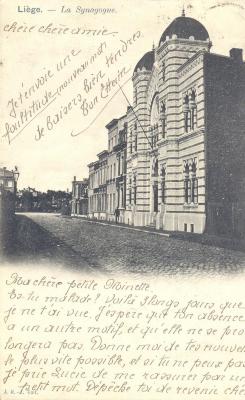 Liège. - La Synagogue.
chère chère amie.
Je t'envoie une
multitude nouveau mot
de baisers bien tendres
Ton
Ma chère petite
Es-tu malade? Voilà 3 longs jours que
je ne t'ai vue. J'espère que ton absence
a un autre motif, et qu'elle ne se pro
longera pas. Donne moi de tes nouvel
le plus vite possible, et si tu ne peux pas
je prie Lucie de me rassurer par un
petit mot. Dépêche toi de revenir chè